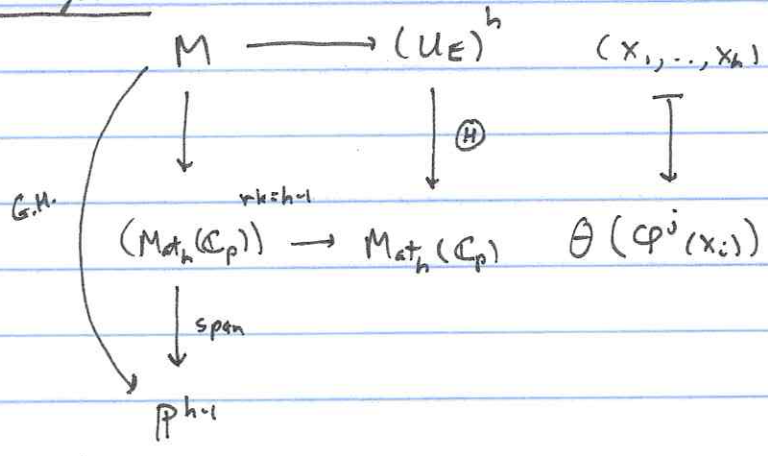 M ⟶ (U_E)^h (x_1, .., x_h)
↓ ↓ Ⓗ ↧
G.H. (Mat_h(ℂ_p))^{rk=h-1} → Mat_h(ℂ_p) θ(φ^j(x_i))
↓ span
ℙ^{h-1}